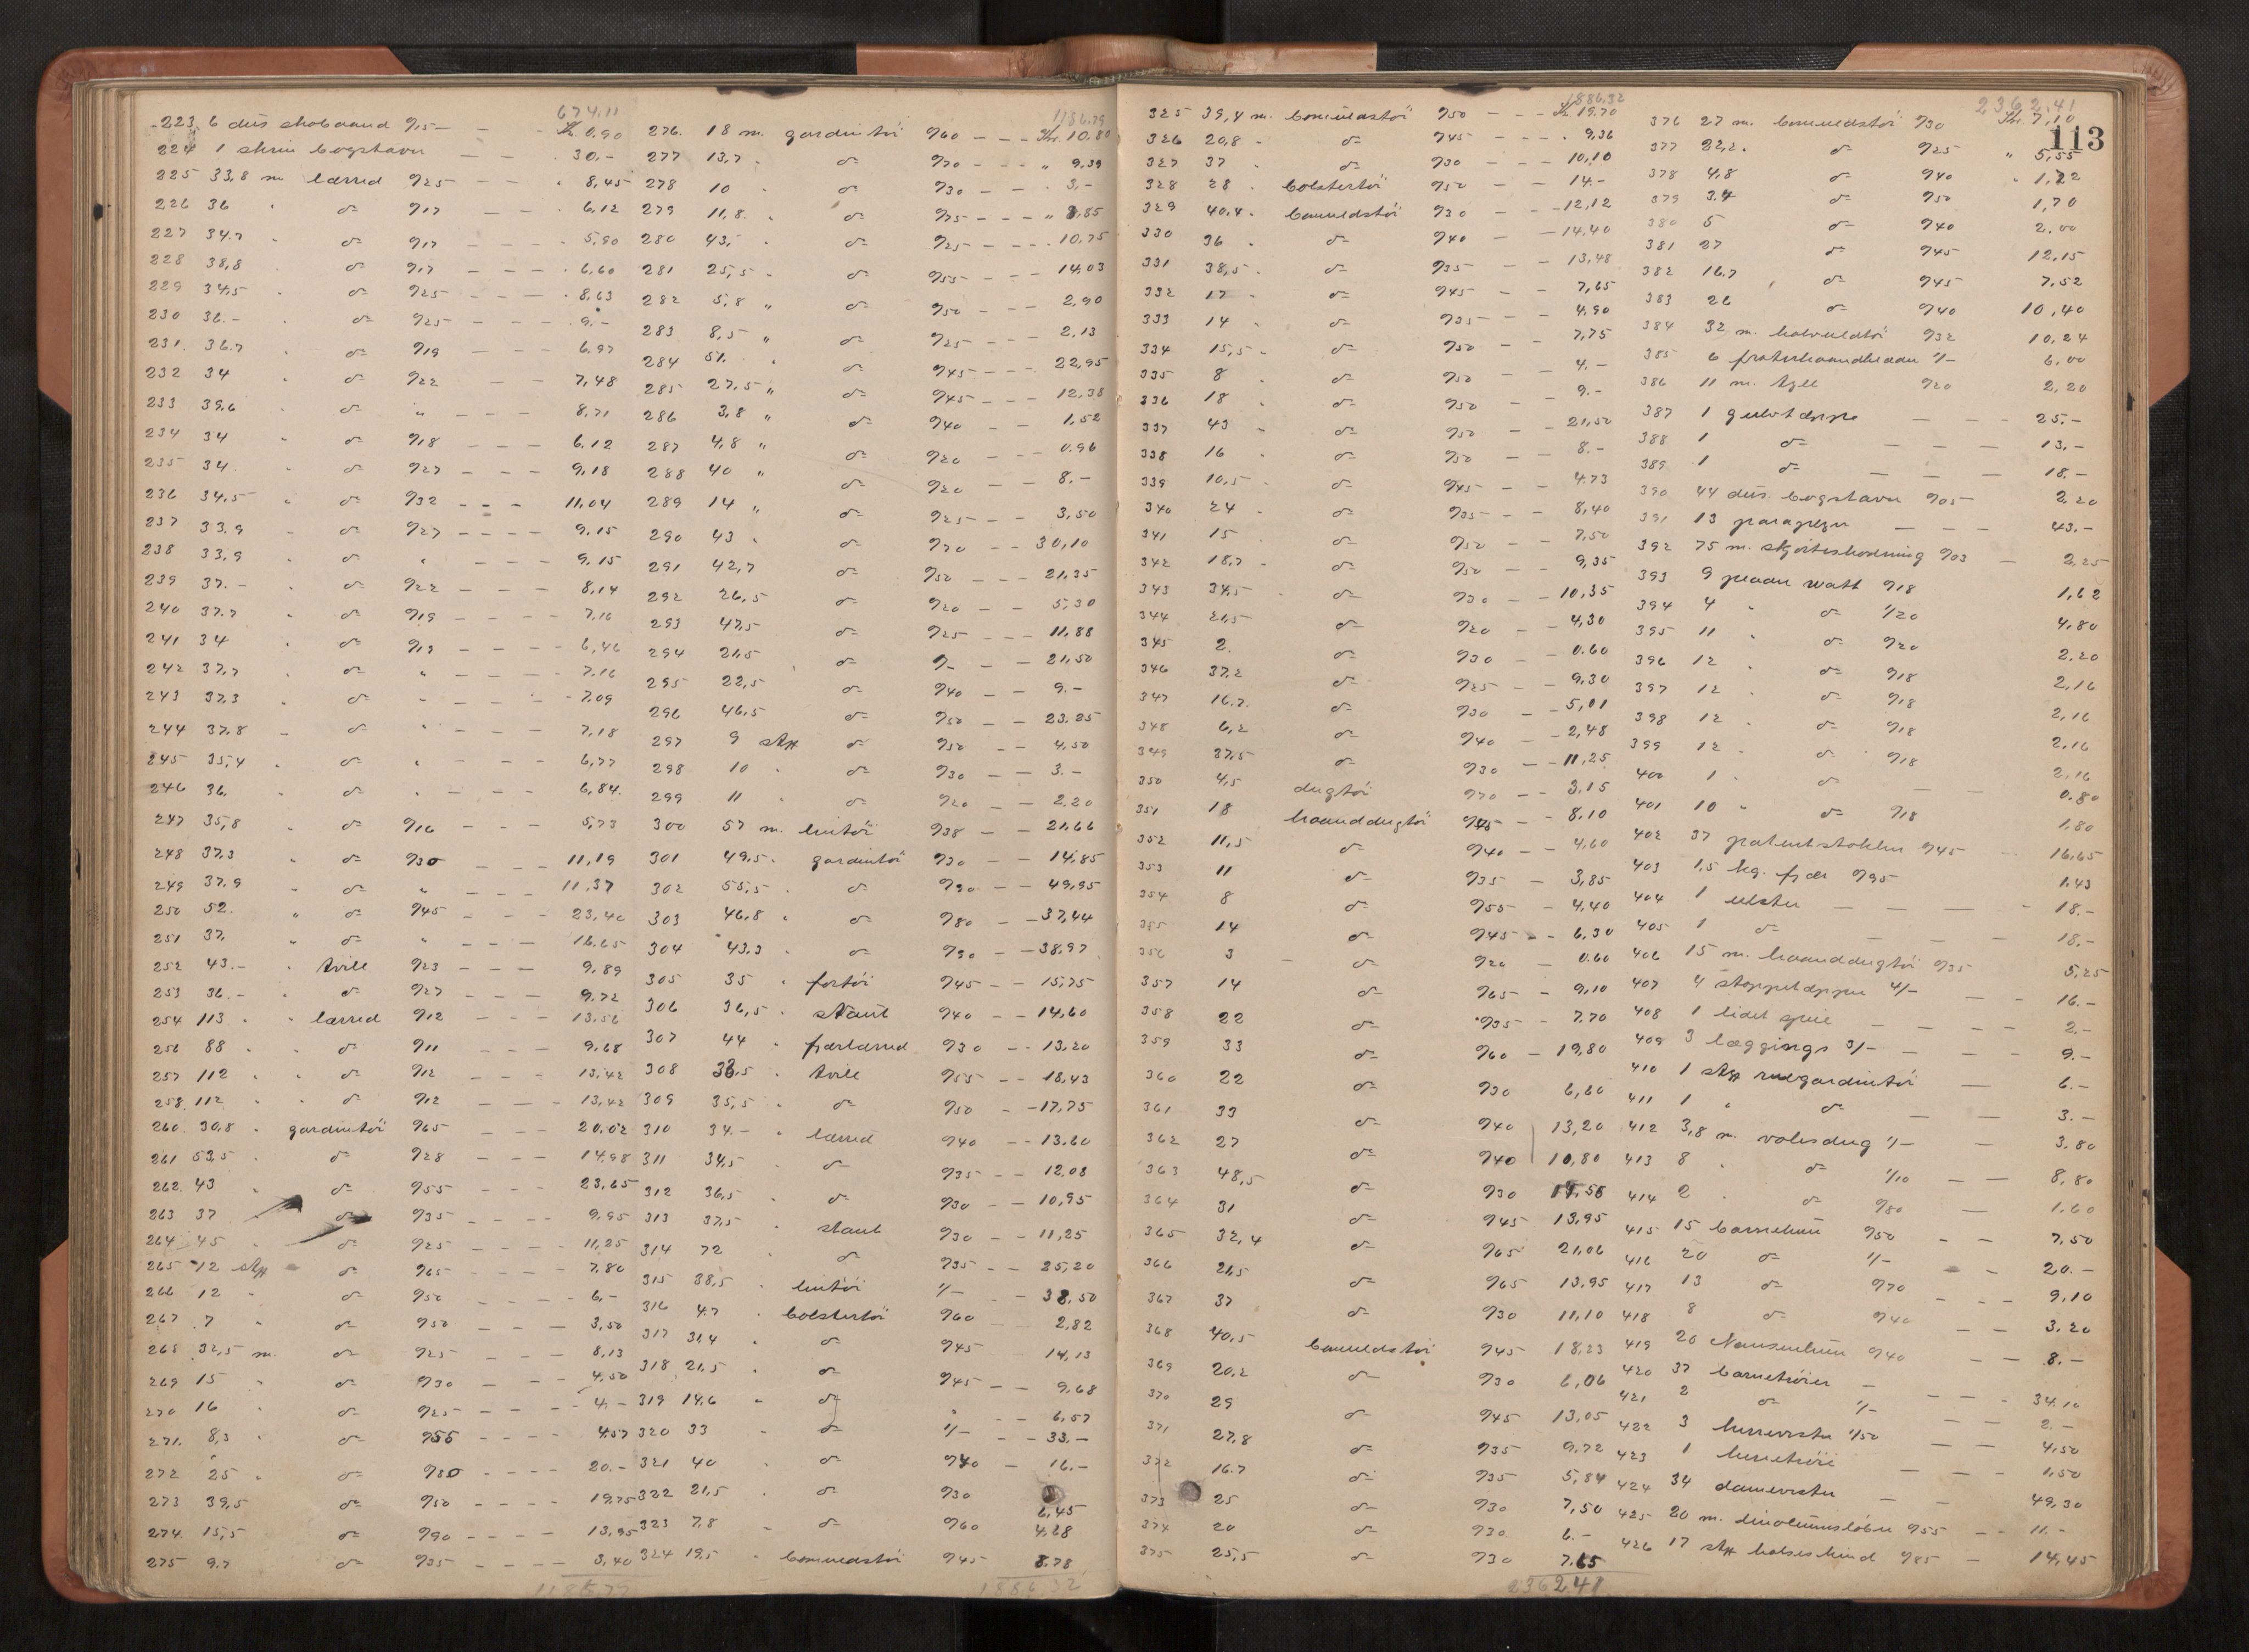 674.11
223 6 dus skobaand 9/15 — — Kr. 0,90
224 1 skrin bogstaver — — 30,-
225 33,8 m lærred 9/25 — — 8,45
226 36 " do 9/17 — — 6,12
227 34.7 " do 9/17 — — 5,90
228 38,8 do 9/17 — — - 6,60
229 34,5 " do 9/25 — — - 8,63
230 36.- " do 9/25 — — - 9.-
231. 36.7 " do 9/19 — — 6.97
232 34 " do 9/22 — — 7,48
233 39.6 " do " — — 8.71
234 34 " do 9/18 — — 6.12
235 34. " do 9/27 — — 9,18
236 34.5 " do 9/32 — — 11,04
237 33.9 " do 9/27 — — 9.15
238 33,9 " do " — — 9.15
239 37.- " do 9/22 — — 8,14
240 37.7 " do 9/19 — — 7,16
241 34 " do 9/19 — — 6,46
242 37,7 " do " — — 7.16
243 37.3 " do " — — 7,09
244 37.8 " do " — — 7,18
245 35,4 " do " — — 6,77
246 36, " do " — — 6,84.
247 35,8 " do 9/16 — — 5,73
248 37.3 " do 9/30 — — 11,19
249 37.9 " do " — — 11,37
250 52. " do 9/45 — — 23,40
251 37. " do " — — 16.65
252 43.- " tvill 9/23 — — 9.89
253 36.- " do 9/27 — — 9.72
254 113 " " lærred 9/12 — — 13.56
256 88 " " do 9/11 — — 9.68
257 112 " " do 9/12 — — 13,42
258. 112 " " do 9/12 — — 13,42
260. 30,8 " gardintöi 9/65 — — 20,02
261 53,5 " do 9/28 — — 14.98
262. 43 " do 9/55 — — 23,65
263 37 do 9/35 — — 9,95
264 45 do 9/25 — — 11,25
265 12 stk do 9/65 — — 7,80
266 12 " do 9/50 — — 6,-
267 7 " do 9/50 — — 3,50
268 32,5 m. do 9/25 — — 8,13
269 15 " do 9/30 — — 4,50
270 16 " do 9/25 — — 4.-
271. 8,3 " do 9/55 — — 4.57
272 25 " do 9/80 — — 20.-
273 39,5 do 9/50 — — 19.75
274. 15,5 do 9/90 — — 13,95
275 9.7 do 9/35 — — 3,40
1186.79
276. 18 m. gardintöi 9/60 — — Kr. 10.80
277 13,7 " do 9/70 — — " 9,39
278 10 " do 9/30 — — 3.-
279 11,8. " do 9/75 — — " 8,85
280 43,- " do 9/25 — — 10.75
281 25,5 " do 9/55 — — 14,03
282 5,8 " do 9/50 — — 2,90
283 8,5 " do 9/25 — — 2.13
284 51. " do 9/45 — — 22,95
285 27,5 " do 9/45 — — 12,38
286 3,8 " do 9/40 — — 1,52
287 4,8 " do 9/20 — — 0.96
288 40 " do 9/20 — — 8.-
289 14 " do 9/25 — — 3,50
290 43 " do 9/70 — — 30,10
291 42,7 do 9/50 — — 21,35
292 26,5 do 9/20 — — 5,30
293 47,5 do 9/25 — — 11,88
294 21,5 " do 9/- — — 21,50
295 22,5 do 9/40 — — 9.-
296 46,5 do 9/50 — — 23.25
297 9 stk do 9/50 — — 4,50
298 10 " do 9/30 — — 3.-
299 11 " do 9/20 — — 2.20
300 57 m. lintöi 9/38 — — 21,66
301 49,5. gardintöi 9/30 — — 14,85
302 55,5 " do 9/90 — — 49,95
303 46,8 " do 9/80 — — 37,44
304 43.3 " do 9/90 — — 38,97
305 35 " fortöi 9/45 — — 15,75
306 36,5 " staut 9/40 — — 14,60
307 44 " fjærlærred 9/30 — — 13,20
308 33,5 " tvill 9/55 — — 18,43
309 35,5 " do 9/50 — — 17,75
310 34.- " lærred 9/40 — — 13.60
311 34,5 " do 9/35 — — 12.08
312 36,5 " do 9/30 — — 10,95
313 37,5 " staut 9/30 — — 11,25
314 72 " do 9/35 — — 25,20
315 38,5 " lintöi 1/- — — 38,50
316 4.7 " bolstertöi 9/60 2,82
317 31,4 " do 9/45 14,13
318 21,5 " do 9/45 — — 9,68
319 14,6 " do " — — 6,57
320 33 " do 1/- — — 33.-
321 40 " do 9/40 — 16.-
322 21,5 " do 9/30 6,45
323 7,8 " do 9/60 4.68
324 19,5 " bomuldstöi 9/45 8.78
1186.79
1886.32
113
1886.32
325 39,4 m. bomuldstöi 9/50 — — Kr. 19.70
326 20,8 " do 9/45 — — 9,36
327 37 " do 9/30 — — 10,10
328 28 " bolstertöi 9/50 — — 14.-
329 40,4 " bomuldstöi 9/30 — — 12,12
330 36 " do 9/40 — — 14.40
331 38,5 " do 9/35 — — 13,48
332 17 " do 9/45 — — 7,65
333 14 " do 9/35 — — 4,90
334 15,5 " do 9/50 — — 7,75
335 8 " do 9/50 — — 4.-
336 18 " do 9/50 — — 9.-
337 43 " do 9/50 — — 21,50
338 16 " do 9/50 — — 8.-
339 10,5 " do 9/45 — — 4.73
340 24 " do 9/35 — — 8,40
341 15 do 9/50 — — 7,50
342 18,7 " do 9/50 — — 9,35
343 34,5 " do 9/30 — — 10,35
344 21,5 do 9/20 — — 4,30
345 2. do 9/30 — — 0.60
346 37,2 do 9/25 — — 9,30
347 16.7. do 9/30 — — 5,01
348 6,2 do 9/40 — — 2,48
349 37,5 do 9/30 — — 11,25
350 4,5 dugtöi 9/70 — — 3,15
351 18 haanddugtöi 9/45 — — 8.10
352 11,5 do 9/40 — — 4,60
353 11 do 9/35 — 3,85
354 8 do 9/55 — 4,40
355 14 do 9/45 — — 6,30
356 3 do 9/20 — 0.60
357 14 do 9/65 — 9,10
358 22 do 9/35 — 7.70
359 33 do 9/60 — 19,80
360 22 do 9/30 6,60
361 33 do 9/40 13,20
362 27 do 9/40 10,80
363 48,5 do 9/30 14,55
364 31 do 9/45 13,95
365 32,4 do 9/65 21,06
366 21,5 do 9/65 13,95
367 37 do 9/30 11,10
368 40,5 bomuldstöi 9/45 18,23
369 20,2 do 9/30 6,06
370 29 do 9/45 13,05
371 27,8 do 9/35 9,72
372 16.7 do 9/35 5,84
373 25 do 9/30 7,50
374 20 do 9/30 6.-
375 25,5 do 9/30 7.65
2362.41
2362,41
376 27 m. bomuldstöi 9/30 Kr. 7,10
377 22,2. do 9/25 " 5,55
378 4,8 do 9/40 " 1,92
379 3.4 do 9/50 1,70
380 5 do 9/40 2.00
381 27 do 9/45 12,15
382 16.7 do 9/45 7,52
383 26 do 9/40 10,40
384 32 m. halvuldtöi 9/32 10,24
385 6 froterhaandklæder 1/- 6,00
386 11 m. tyll 9/20 2,20
387 1 gulvtæppe — — 25.-
388 1 do — — — 13,-
389 1 do — — — 18.-
390 44 dus. bogstaver 9/05 2.20
391 13 paraplyer — — — 43.-
392 75 m. skjörteskoning 9/03 — 2,25
393 9 plader watt 9/18 1,62
394 4 " do 1/20 4,80
395 11 " do 9/20 2.20
396 12 " do 9/18 2,16
397 12 " do 9/18 2,16
398 12 " do 9/18 2,16
399 12 " do 9/18 2,16
400 1 " do — — 0.80
401 10 " do 9/18 1,80
402 37 patentstokker 9/45 16,65
403 1,5 kg. fjær 9/95 1,43
404 1 ulster — — — 18.-
405 1 do — — — 18,-
406 15 m. haanddugtöi 9/35 5,25
407 4 stoppetæpper 4/- — — 16.-
408 1 lidet speil — — — 2,-
409 3 læggings 3/- — — — 9.-
410 1 stk rulgardintöi — 6.-
411 1 " do — — 3.-
412 3,8 m. voksdug 1/- — 3.80
413 8 " do 1/10 — — 8,80
414 2 " do 9/80 — 1.60
415 15 barnehuer 9/50 — — 7.50
416 20 do 1/- — 20.-
417 13 do 9/70 — — 9,10
418 8 do 9/40 — — 3.20
419 20 Nansenhuer 9/40 — — 8.-
420 37 barnetröier — — — 34.10
421 2 do 1/- 2.-
422 3 herrevester 1/50 — — 4,50
423 1 herretröie — — — 1,50
424 34 damevester — — 49,30
425 20 m. linoleumslöber 9/55 — — 11.-
426 17 stk halseskind 9/85 — 14,45